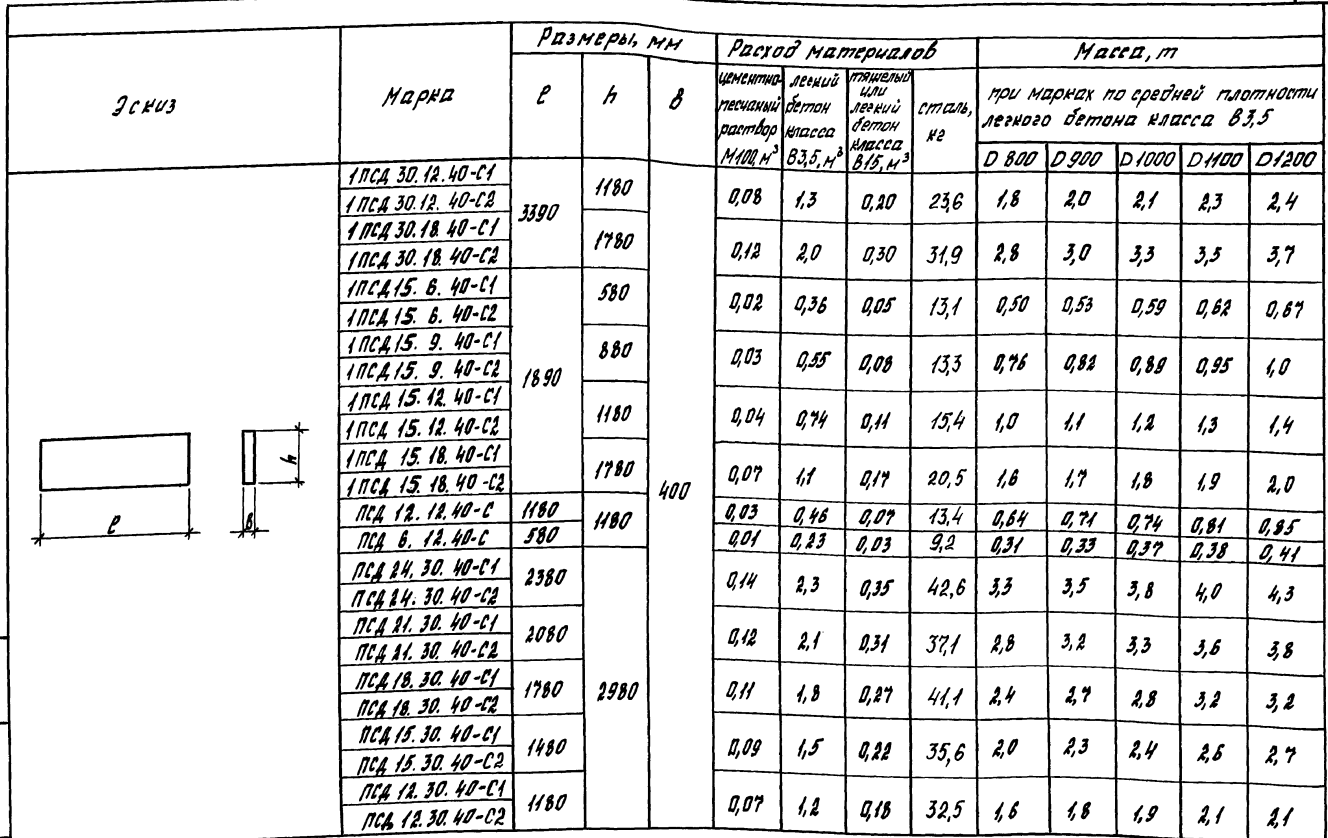 Эскиз
Марка
Размеры, мм
Расход материалов
Масса, т
ℓ
h
В
цементно-песчаный раствор М100, м³
легкий бетон класса В3,5, м³
тяжелый или легкий бетон класса В15, м³
сталь, кг
при марках по средней плотности
легкого бетона класса В3,5
D 800 D 900 D 1000 D 1100 D 1200
1ПСД 30.12.40-С1
1ПСД 30.12.40-С2
3390 1180 0,08 1,3 0,20 23,6 1,8 2,0 2,1 2,3 2,4
1ПСД 30.18.40-С1
1ПСД 30.18.40-С2
1780 0,12 2,0 0,30 31,9 2,8 3,0 3,3 3,5 3,7
1ПСД 15.6.40-С1
1ПСД 15.6.40-С2
580 0,02 0,36 0,05 13,1 0,50 0,53 0,59 0,62 0,67
1ПСД 15.9.40-С1
1ПСД 15.9.40-С2
1890 880 0,03 0,55 0,08 13,3 0,76 0,82 0,89 0,95 1,0
1ПСД 15.12.40-С1
1ПСД 15.12.40-С2
1180 0,04 0,74 0,11 15,4 1,0 1,1 1,2 1,3 1,4
1ПСД 15.18.40-С1
1ПСД 15.18.40-С2
1780 400 0,07 1,1 0,17 20,5 1,6 1,7 1,8 1,9 2,0
ПСД 12.12.40-С 1180 1180 0,03 0,46 0,07 13,4 0,64 0,71 0,74 0,81 0,85
ПСД 6.12.40-С 580 0,01 0,23 0,03 9,2 0,31 0,33 0,37 0,38 0,41
ПСД 24.30.40-С1
ПСД 24.30.40-С2
2380 0,14 2,3 0,35 42,6 3,3 3,5 3,8 4,0 4,3
ПСД 21.30.40-С1
ПСД 21.30.40-С2
2080 0,12 2,1 0,31 37,1 2,8 3,2 3,3 3,6 3,8
ПСД 18.30.40-С1
ПСД 18.30.40-С2
1780 2980 0,11 1,8 0,27 41,1 2,4 2,7 2,8 3,2 3,2
ПСД 15.30.40-С1
ПСД 15.30.40-С2
1480 0,09 1,5 0,22 35,6 2,0 2,3 2,4 2,6 2,7
ПСД 12.30.40-С1
ПСД 12.30.40-С2
1180 0,07 1,2 0,18 32,5 1,6 1,8 1,9 2,1 2,1
ℓ
В
h